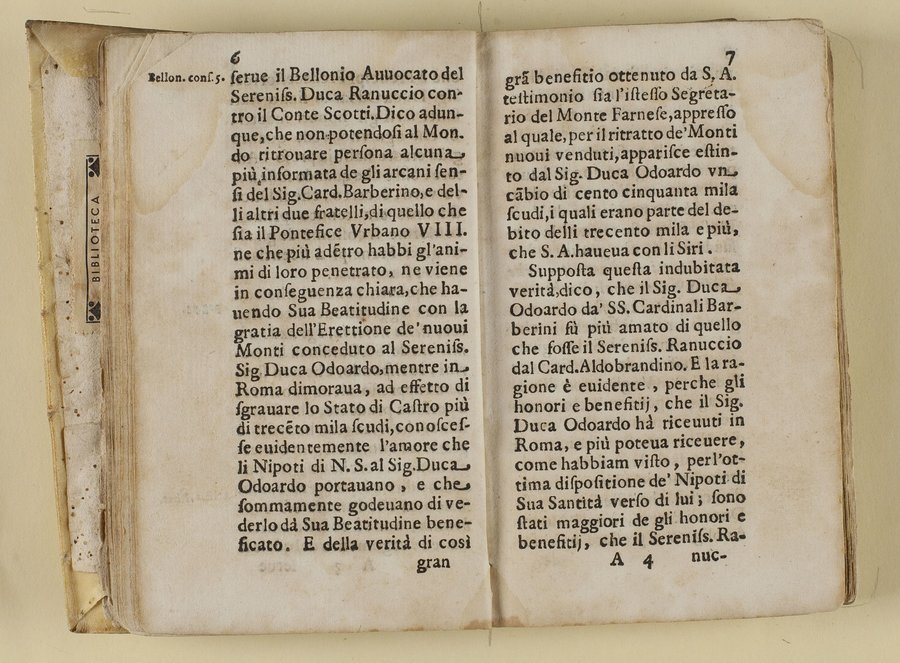 BIBLIOTECA
6
Bellon. conſ. 5.
ſerue il Bellonio Auuocato del
Sereniſs. Duca Ranuccio con-
tro il Conte Scotti. Dico adun-
que, che non potendoſi al Mon-
do ritrouare perſona alcuna
più informata de gli arcani ſen-
ſi del Sig. Card. Barberino, e del-
li altri due fratelli, di quello che
ſia il Pontefice Vrbano VIII.
ne che più adẽtro habbi gl'ani-
mi di loro penetrato, ne viene
in conſeguenza chiara, che ha-
uendo Sua Beatitudine con la
gratia dell'Erettione de' nuoui
Monti conceduto al Sereniſs.
Sig. Duca Odoardo, mentre in
Roma dimoraua, ad effetto di
ſgrauare lo Stato di Caſtro più
di trecẽto mila ſcudi, conoſceſ-
ſe euidentemente l'amore che
li Nipoti di N. S. al Sig. Duca
Odoardo portauano, e che
ſommamente godeuano di ve-
derlo dà Sua Beatitudine bene-
ficato. E della verità di così
gran
7
grã benefitio ottenuto da S. A.
teſtimonio ſia l'iſteſſo Segreta-
rio del Monte Farneſe, appreſſo
al quale, per il ritratto de' Monti
nuoui venduti, appariſce eſtin-
to dal Sig. Duca Odoardo vn
cãbio di cento cinquanta mila
ſcudi, i quali erano parte del de-
bito delli trecento mila e più,
che S. A. haueua con li Siri.
Suppoſta queſta indubitata
verità, dico, che il Sig. Duca
Odoardo da' SS. Cardinali Bar-
berini fù più amato di quello
che foſſe il Sereniſs. Ranuccio
dal Card. Aldobrandino. E la ra-
gione è euidente, perche gli
honori e benefitij, che il Sig.
Duca Odoardo hà riceuuti in
Roma, e più poteua riceuere,
come habbiam viſto, per l'ot-
tima diſpoſitione de' Nipoti di
Sua Santità verſo di lui; ſono
ſtati maggiori de gli honori e
benefitij, che il Sereniſs. Ra-
A 4 nuc-